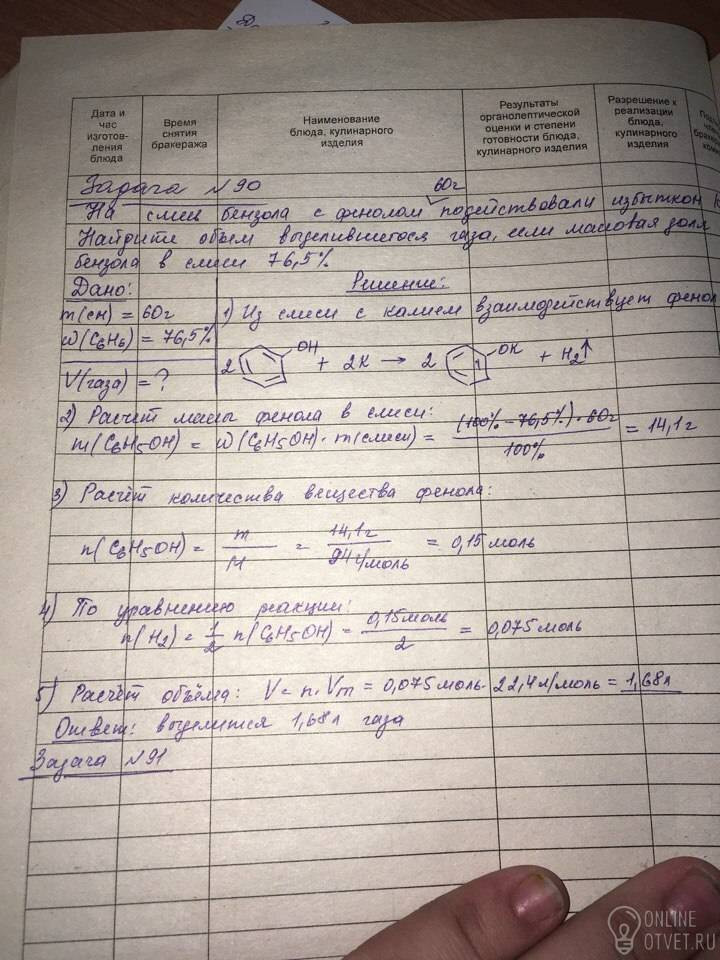 Дата и час изготов-ления блюда
Время снятия бракеража
Наименование блюда, кулинарного изделия
Результаты органолептической оценки и степени готовности блюда, кулинарного изделия
Разрешение к реализации блюда, кулинарного изделия
Задача №90
60г
На смесь бензола с фенолом подействовали избытком К
Найдите объем выделившегося газа, если массовая доля
бензола в смеси 76,5%
Дано: Решение:
m(см) = 60г 1) Из смеси с калием взаимодействует фенол
w(C6H6) = 76,5%
OH OK
2 + 2K → 2 + H2↑
V(газа) = ?
2) Расчёт массы фенола в смеси:
m(C6H5OH) = w(C6H5OH)·m(смеси) = (100% - 76,5%)·60г / 100% = 14,1г
3) Расчёт количества вещества фенола:
n(C6H5OH) = m / M = 14,1г / 94г/моль = 0,15моль
4) По уравнению реакции:
n(H2) = 1/2 n(C6H5OH) = 0,15моль / 2 = 0,075моль
5) Расчёт объёма: V = n·Vm = 0,075моль·22,4л/моль = 1,68л
Ответ: выделится 1,68л газа
Задача №91
ONLINE
OTVET.RU